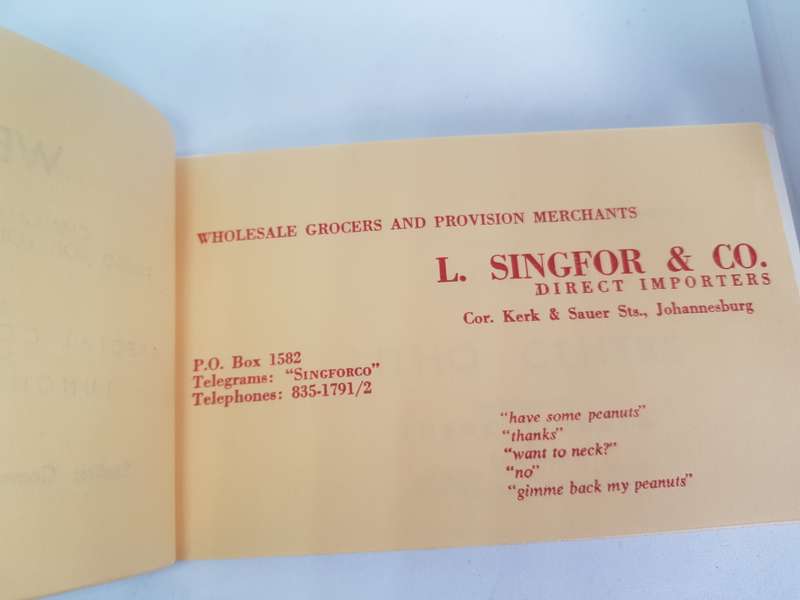 WHOLESALE GROCERS AND PROVISION MERCHANTS
L. SINGFOR & CO.
DIRECT IMPORTERS
Cor. Kerk & Sauer Sts., Johannesburg
P.O. Box 1582
Telegrams: "SINGFORCO"
Telephones: 835-1791/2
"have some peanuts"
"thanks"
"want to neck?"
"no"
"gimme back my peanuts"